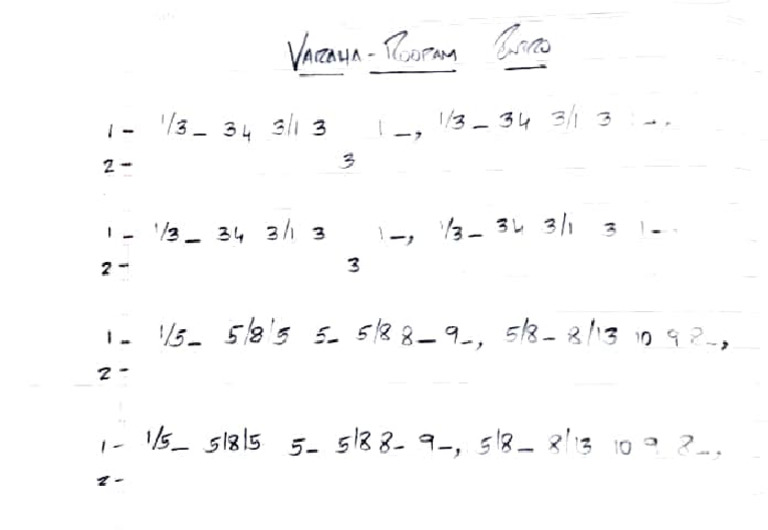 VARAHA-ROOPAM INTRO
1- 1/3_ 34 3/1 3 1_, 1/3_ 34 3/1 3 1_.
2- 3
1- 1/3_ 34 3/1 3 1_, 1/3_ 34 3/1 3 1_..
2- 3
1- 1/5_ 5/8/5 5_ 5/8 8_ 9_, 5/8_ 8/13 10 9 8_,
2-
1- 1/5_ 5/8/5 5_ 5/8 8_ 9_, 5/8_ 8/13 10 9 8_,
2-